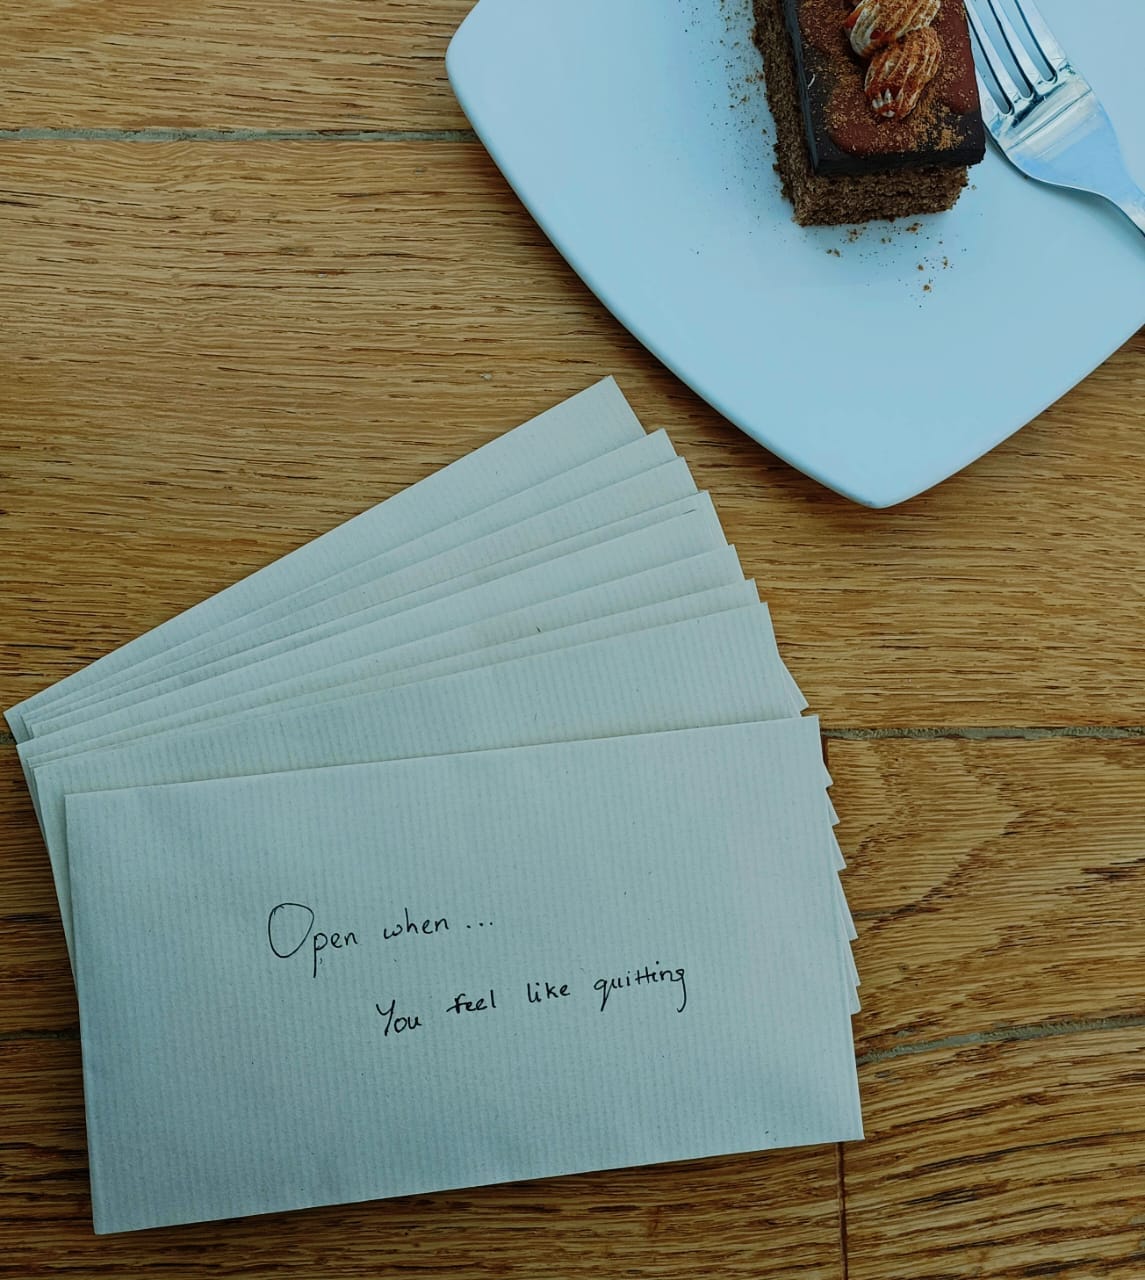 Open when...
You feel like quitting